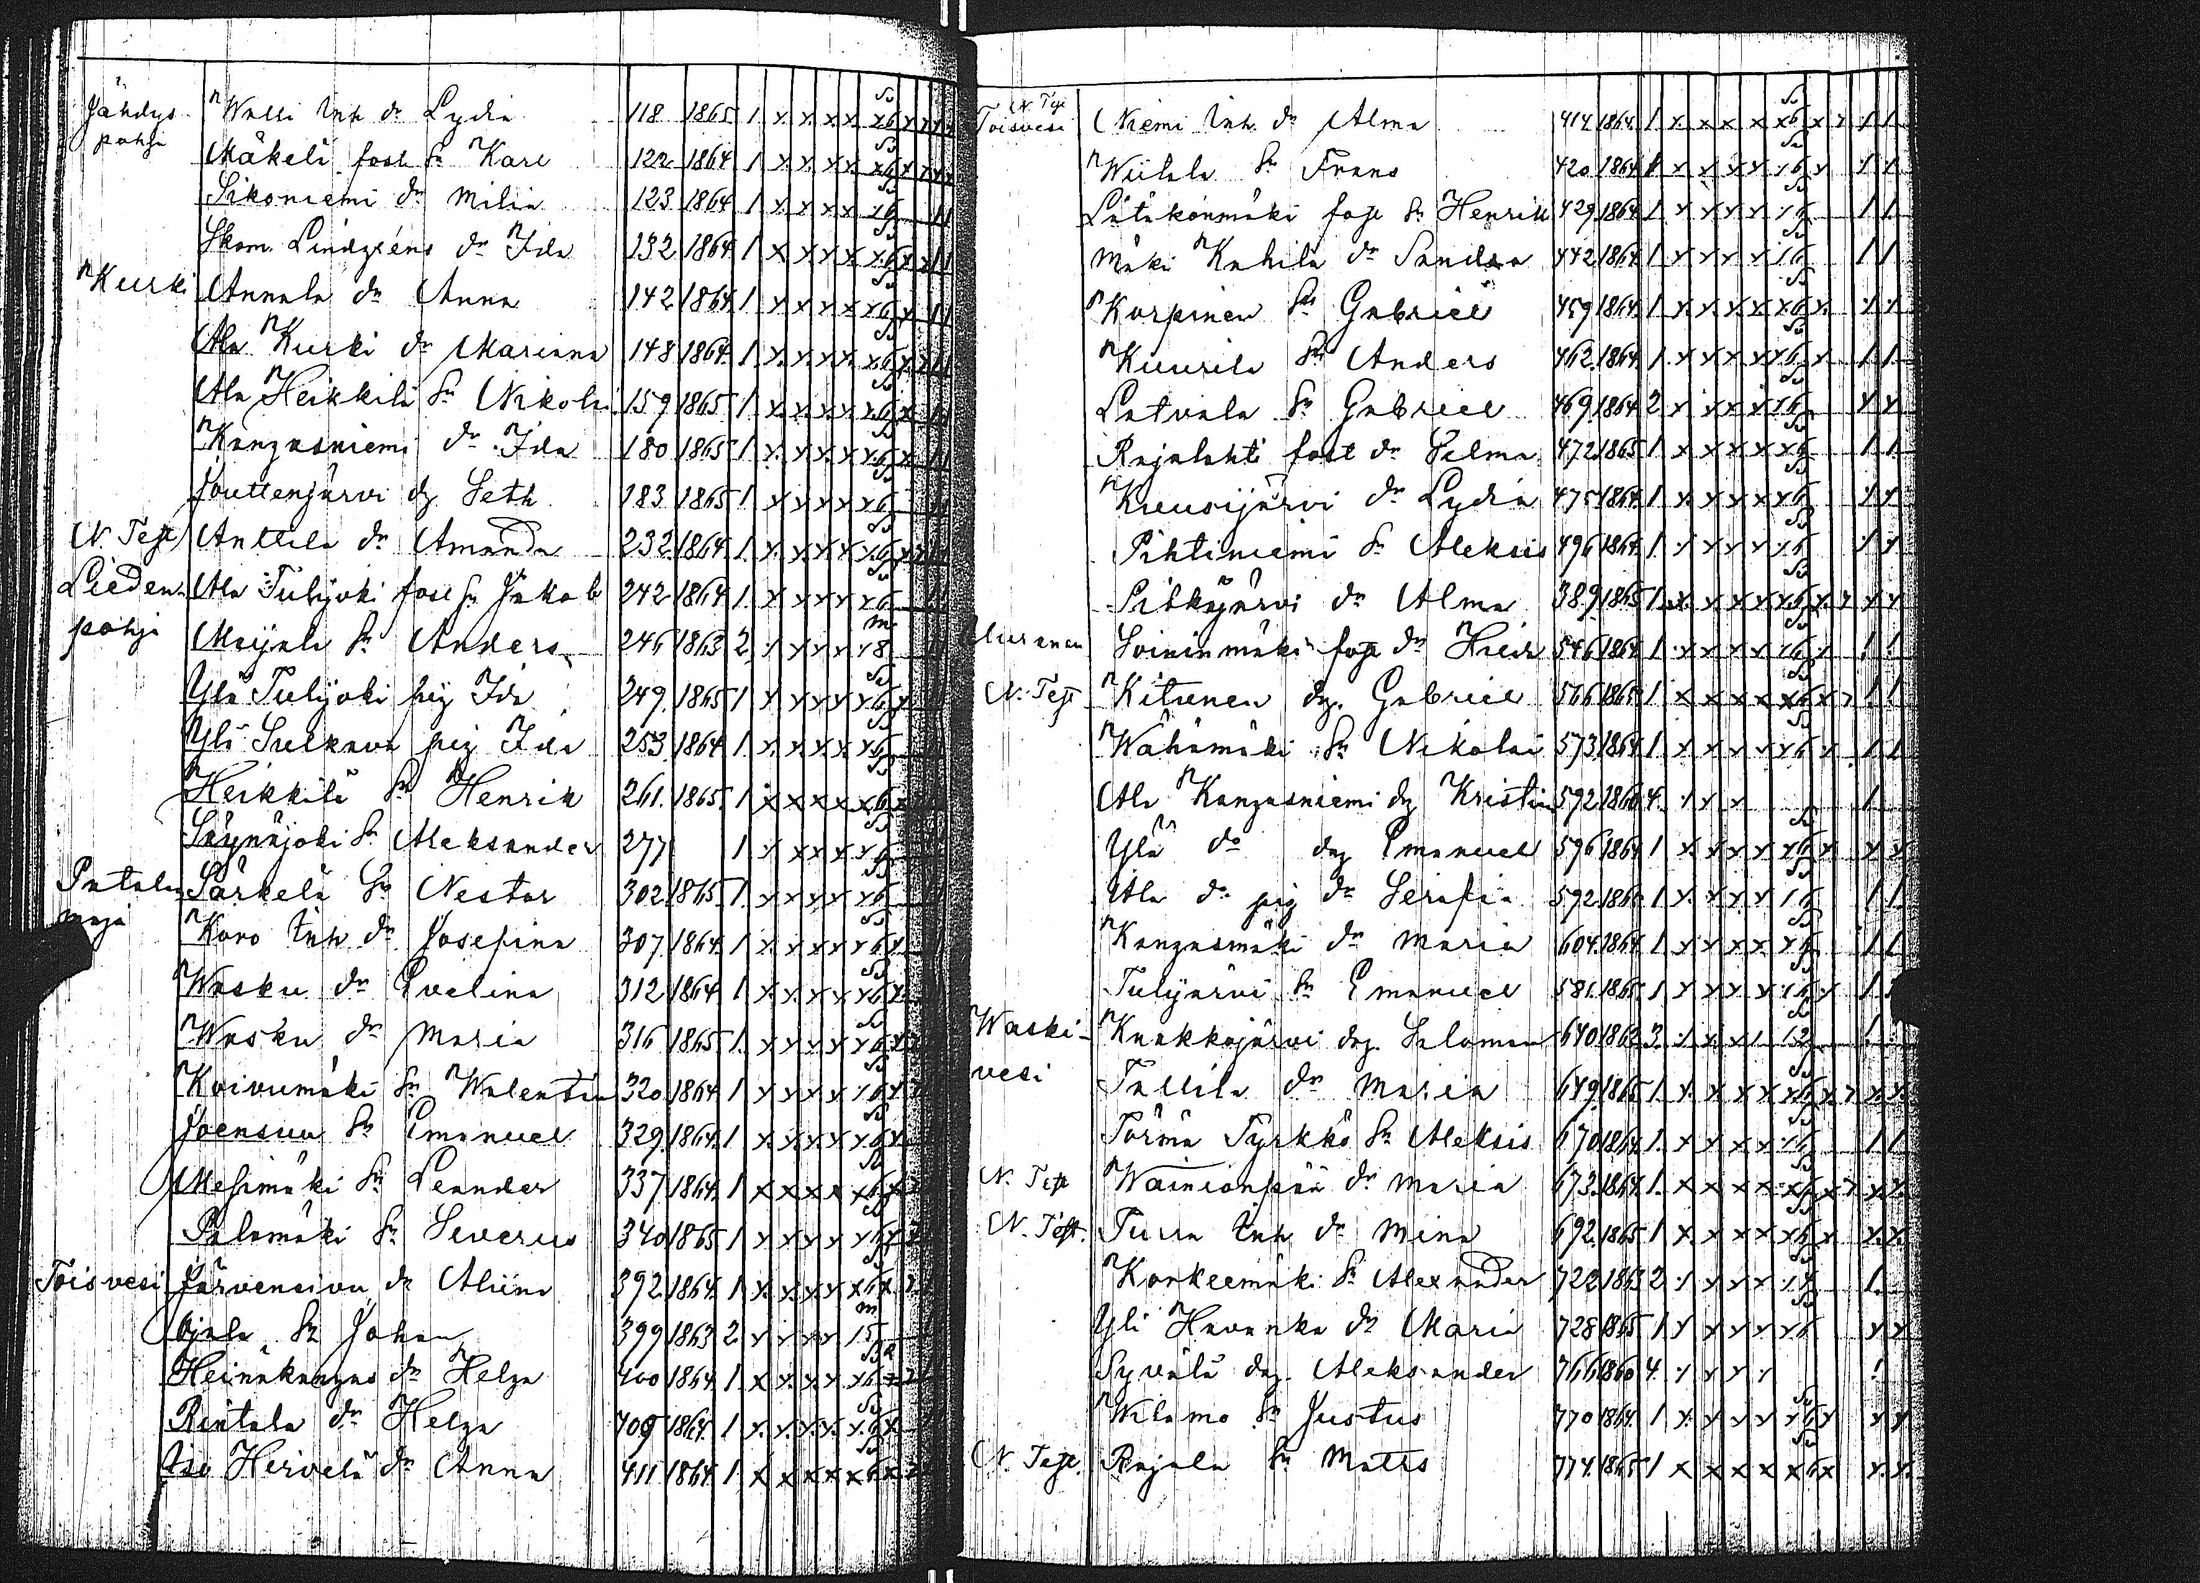 Jähdys Walli Inh dr Lydia 118 1865 1 x x x x x6
pohja
Mäkelä fost Sn Karl 122 1864 1 x x x x x6
Sikoniemi dr Milia 123 1864 1 x x x x x6
Skom. Lindgréns dr Ida 132 1864 1 x x x x x6
Kurki Annala dr Anna 142 1864 1 x x x x x6
Ala Kurki dr Marianna 148 1864 1 x x x x x6
Ala Heikkilä Sn Nikolai 159 1865 1 x x x x x6
Kangasniemi dr Ida 180 1865 1 x x x x x6
Jouttenjärvi dg Seth 183 1865 1 x x x x x6
N. Test Anttila dr Amanda 232 1864 1 x x x x x6
Lieden Ala Tulijoki fost Sn Jakob 242 1864 1 x x x x x6
pohja Maijala Sn Anders 246 1863 2 x x x x 18
Ylä Tulijoki pig Ida 249 1865 1 x x x x x6
Yli Sulkava pig Ida 253 1864 1 x x x x x6
Heikkilä Sn Henrik 261 1865 1 x x x x x6
Säynäjoki Sn Aleksander 277 1 x x x x x6
Patala Särkelä Sn Nestor 302 1865 1 x x x x x6
maja Koro Inh dr Josefina 307 1864 1 x x x x x6
Wasku dr Evelina 312 1864 1 x x x x x6
Wasku dr Maria 316 1865 1 x x x x x6
Koivumäki Sn Walentin 320 1864 1 x x x x x6
Joensuu Sn Emanuel 329 1864 1 x x x x x6
Mesimäki Sn Leander 337 1864 1 x x x x x6
Palomäki Sn Severus 340 1865 1 x x x x x6
Toisvesi Järvensivu dr Aliina 392 1864 1 x x x x x6
Ojala Sn Johan 399 1863 2 x x x x 15
Heinäkangas dr Helga 400 1864 1 x x x x x6
Rintala dr Helga 409 1864 1 x x x x x6
Iso Hirvelä dr Anna 411 1864 1 x x x x x6
N. Test
Toisvesi Niemi Inh. dr Alma 414 1864 1 x x x x x6
Wiitala Sn Frans 420 1864 1 x x x x x6
Lätäkönmäki fost Sn Henrik 429 1864 1 x x x x x6
Mäki Kahila dr Sandra 442 1864 1 x x x x x6
Korpinen Sn Gabriel 459 1864 1 x x x x x6
Kuurila Sn Anders 462 1864 1 x x x x x6
Latvala Sn Gabriel 469 1864 2 x x x x x6
Rajalahti fost dr Selma 472 1865 1 x x x x x6
Kuusijärvi dr Lydia 475 1864 1 x x x x x6
Pihtiniemi Sn Aleksis 496 1864 1 x x x x x6
Pitkäjärvi dr Alma 389 1865 1 x x x x x6
Soininmäki fost dr Hilda 546 1864 1 x x x x x6
N. Test Kitunen dg. Gabriel 566 1865 1 x x x x x6
Wähämäki Sn Nikolai 573 1864 1 x x x x x6
Ala Kangasniemi dg Kristian 592 1860 4 x x x
Ylä do dg Emanuel 596 1864 1 x x x x x6
Ala do pig dr Serafia 592 1864 1 x x x x x6
Kangasmäki dr Maria 604 1864 1 x x x x x6
Tulijärvi Sn Emanuel 581 1865 1 x x x x x6
Waski- Kaakkojärvi dg. Salomon 640 1862 3
vesi
Tallila dr Maria 649 1865 1 x x x x x6
Törmä Tyrkkö Sn Aleksis 670 1864 1 x x x x x6
N. Test Wäinionpää dr Maria 673 1864 1 x x x x x6
N. Test. Turra Inh dr Mina 692 1865 1 x x x x x6
Korkeemäki Sn Alexander 722 1863 2 x x x x
Yli Havanka dr Maria 728 1865 1 x x x x x6
Syvälä dg. Aleksander 766 1860 4 x x x x
Wilamo Sn Justus 770 1864 1 x x x x x6
N. Test. Rajala Sn Matts 774 1865 1 x x x x x6